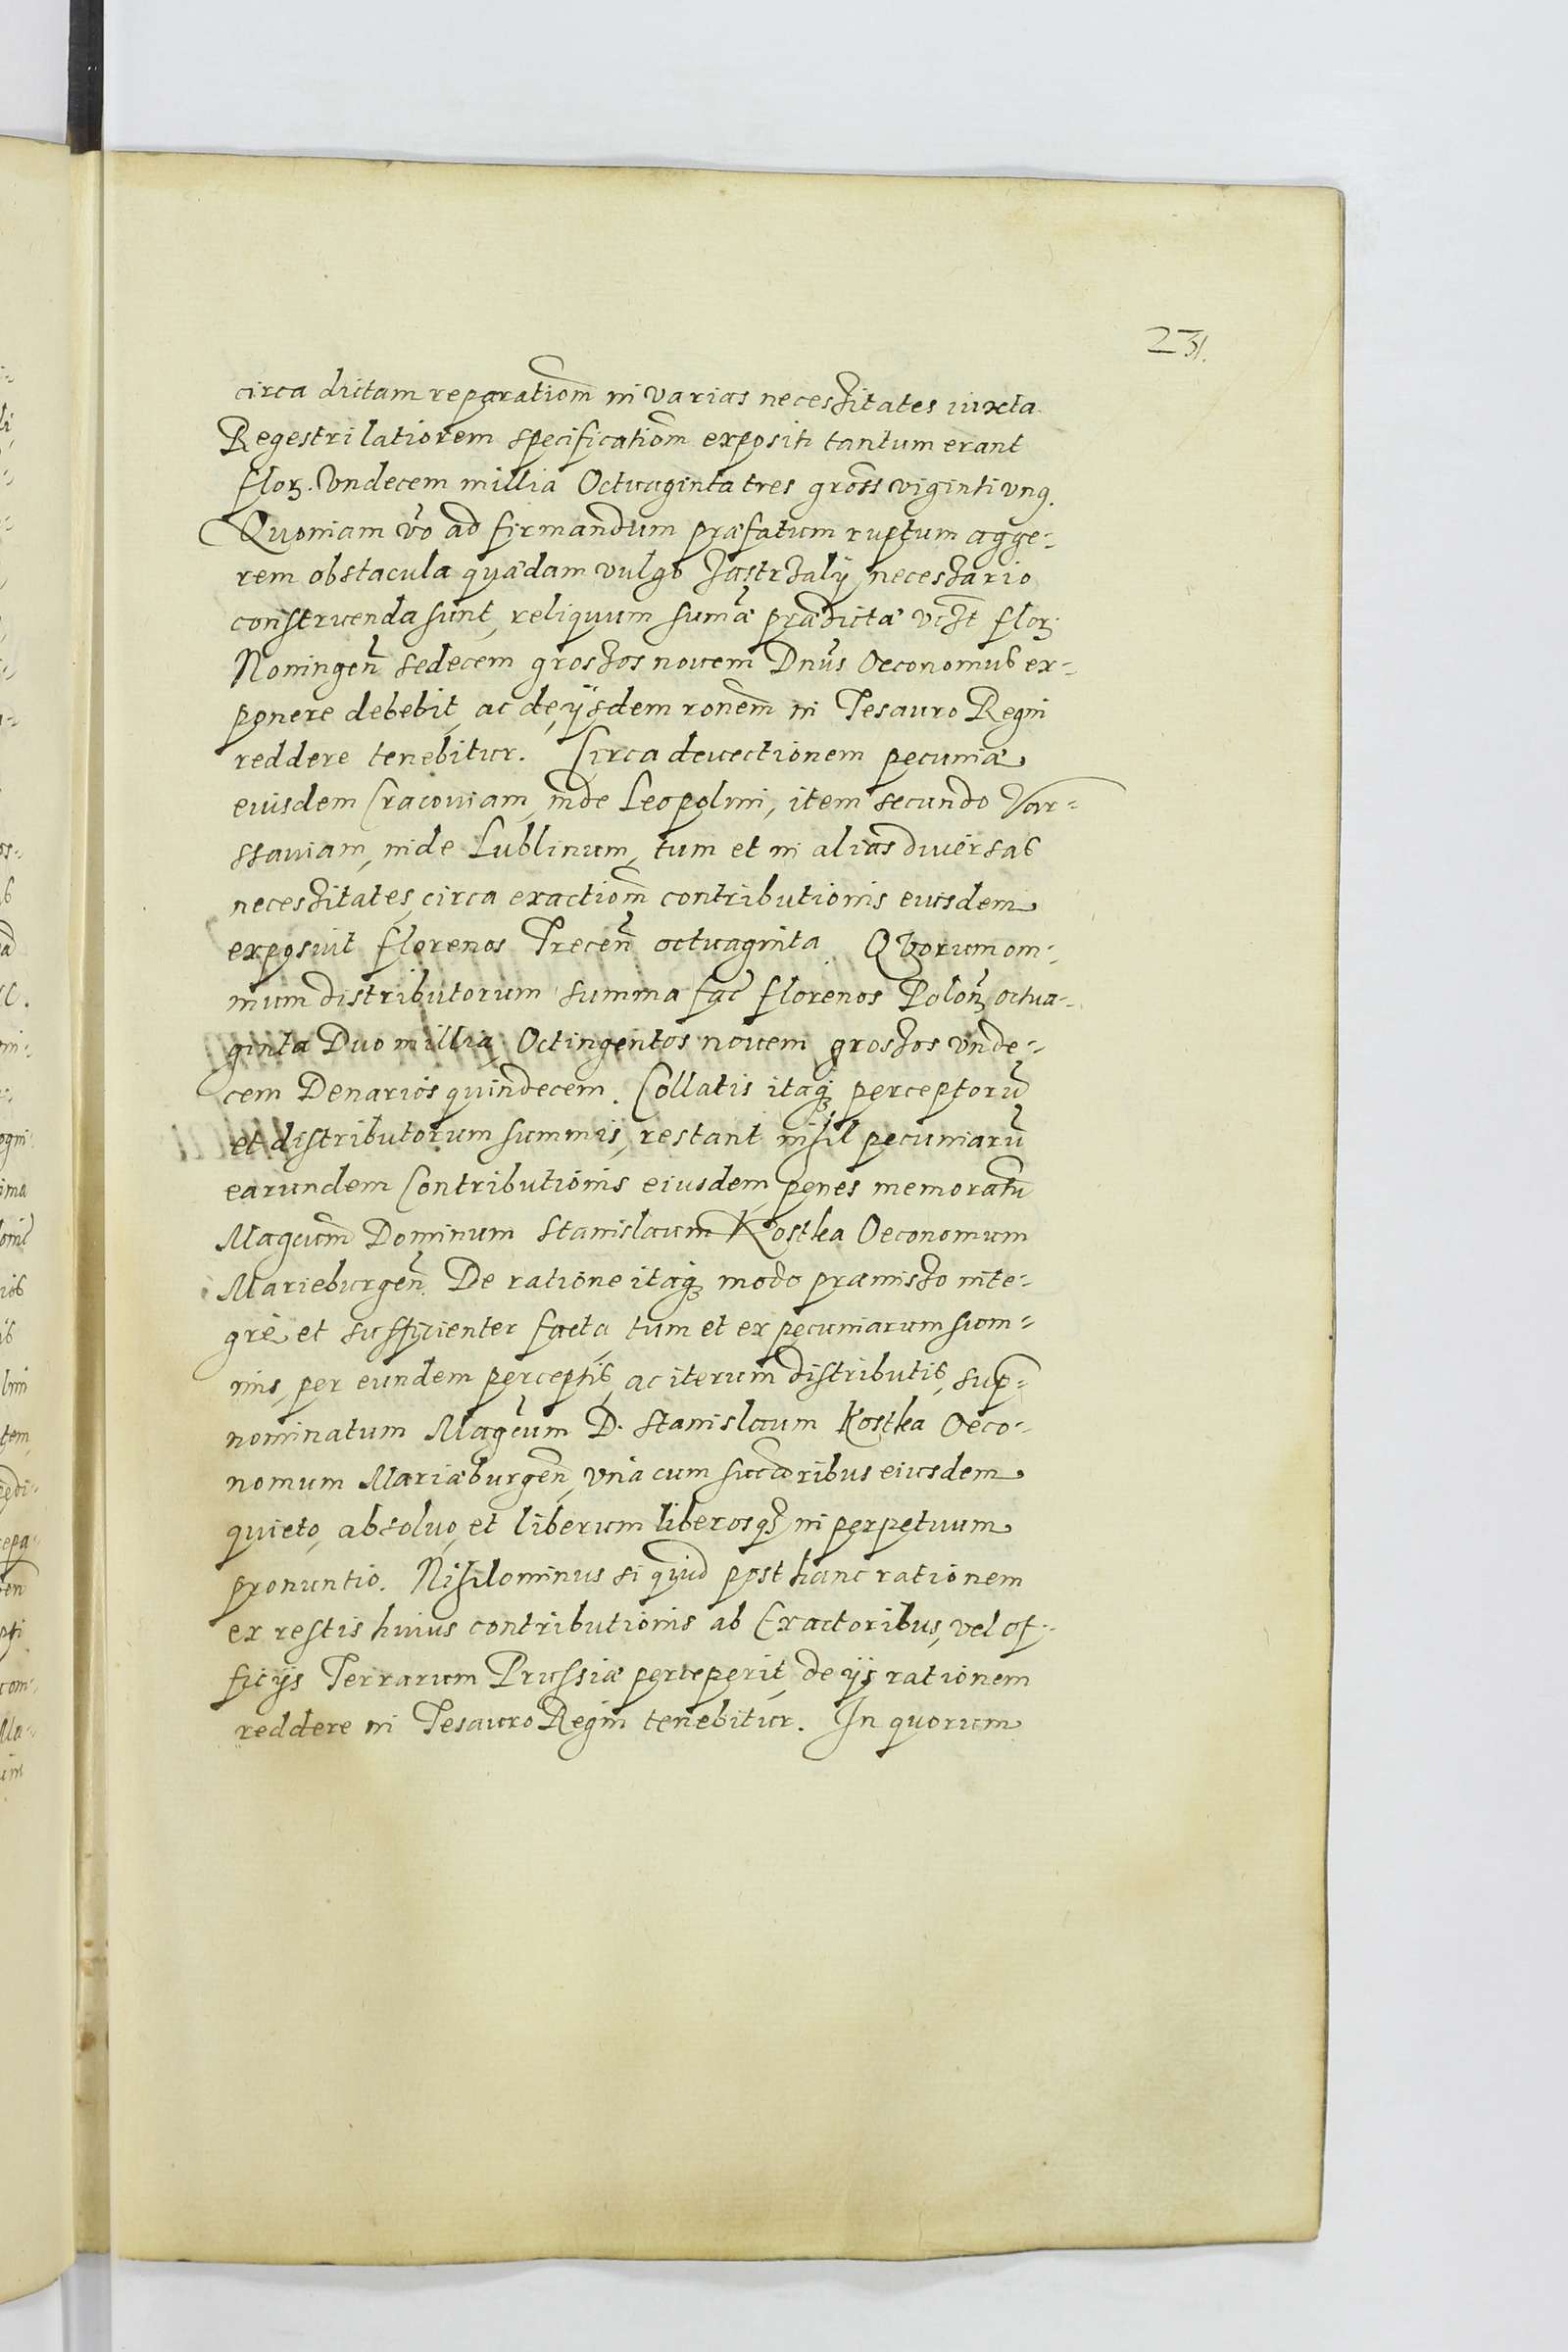 231.
circa dictam reparatiom̄ in varias necessitates iuxta
Regestri latiorem specificatiom̄ expositi tantum erant
flor. Vndecem millia Octuaginta tres gross viginti vnq.
Quoniam vo ad firmandum præfatum ruptum agge-
rem obstacula quædam vulgo Jastrzaly necessario
construenda sunt, reliquum sumæ prædictæ vizt flor.
Noningen̄ sedecem grossos nouem Dnus Oeconomus ex-
ponere debebit, ac de ijsdem ronem̄ in Tesauro Regni
reddere tenebitur. Circa deuectionem pecuniæ
eiusdem Cracouiam, inde Leopolim, item secundo Var-
ssauiam, inde Lublinum, tum et in alias diuersas
necessitates, circa exactiom̄ contributionis eiusdem
exposuit florenos Trecen̄ octuaginta. Quorum om-
nium distributorum summa fac̄ florenos Polon̄ octua-
ginta Duo millia, Octingentos nouem grossos vnde-
cem Denarios quindecem. Collatis itaq perceptorū
et distributorum summis, restant nihil pecuniarū
earundem Contributionis eiusdem penes memoratū
Magcum̄ Dominum Stanislaum Kostka Oeconomum
Marieburgen̄. De ratione itaq modo præmisso inte-
grè et sufficienter facta, tum et ex pecuniarum sum-
mis, per eundem perceptis, ac iterum distributis, sup-
nominatum Magcum D. Stanislaum Kostka Oeco-
nomum Mariæburgen̄, vnà cum succoribus eiusdem
quieto, absoluo, et liberum liberosq in perpetuum
pronuntio. Nihilominus si quid post hanc rationem
ex restis huius contributionis ab Exactoribus, vel of-
ficijs Terrarum Prussiæ perceperit, de ijs rationem
reddere in Tesauro Regni tenebitur. In quorum